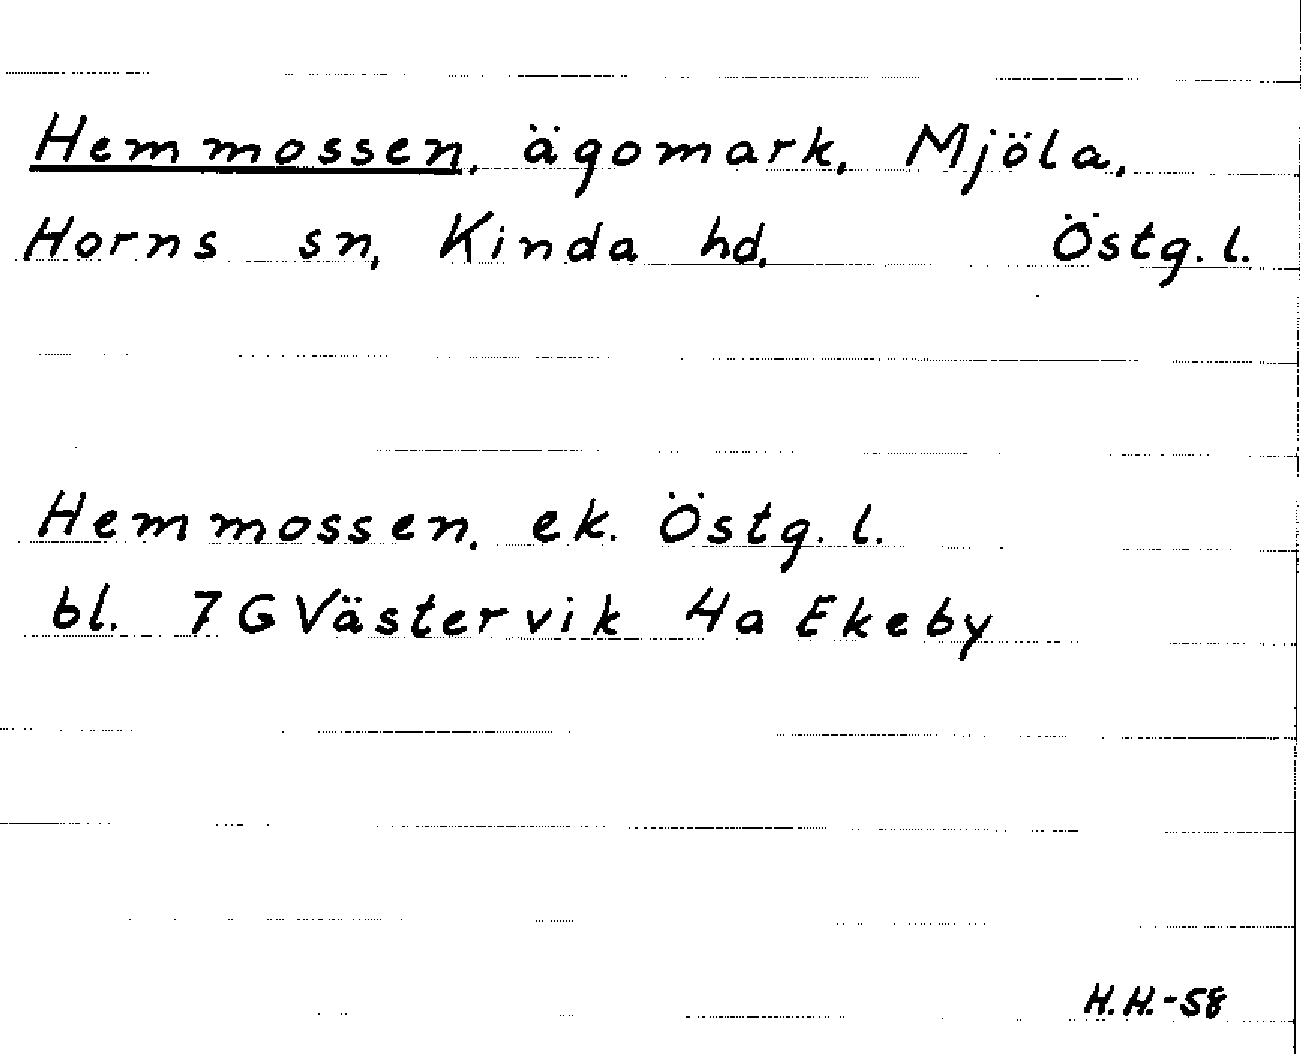 Hemmossen, ägomark, Mjöla,
Horns sn, Kinda hd, Östg. l.
Hemmossen, ek. Östg. l.
bl. 7 G Västervik 4a Ekeby
H.H.-58